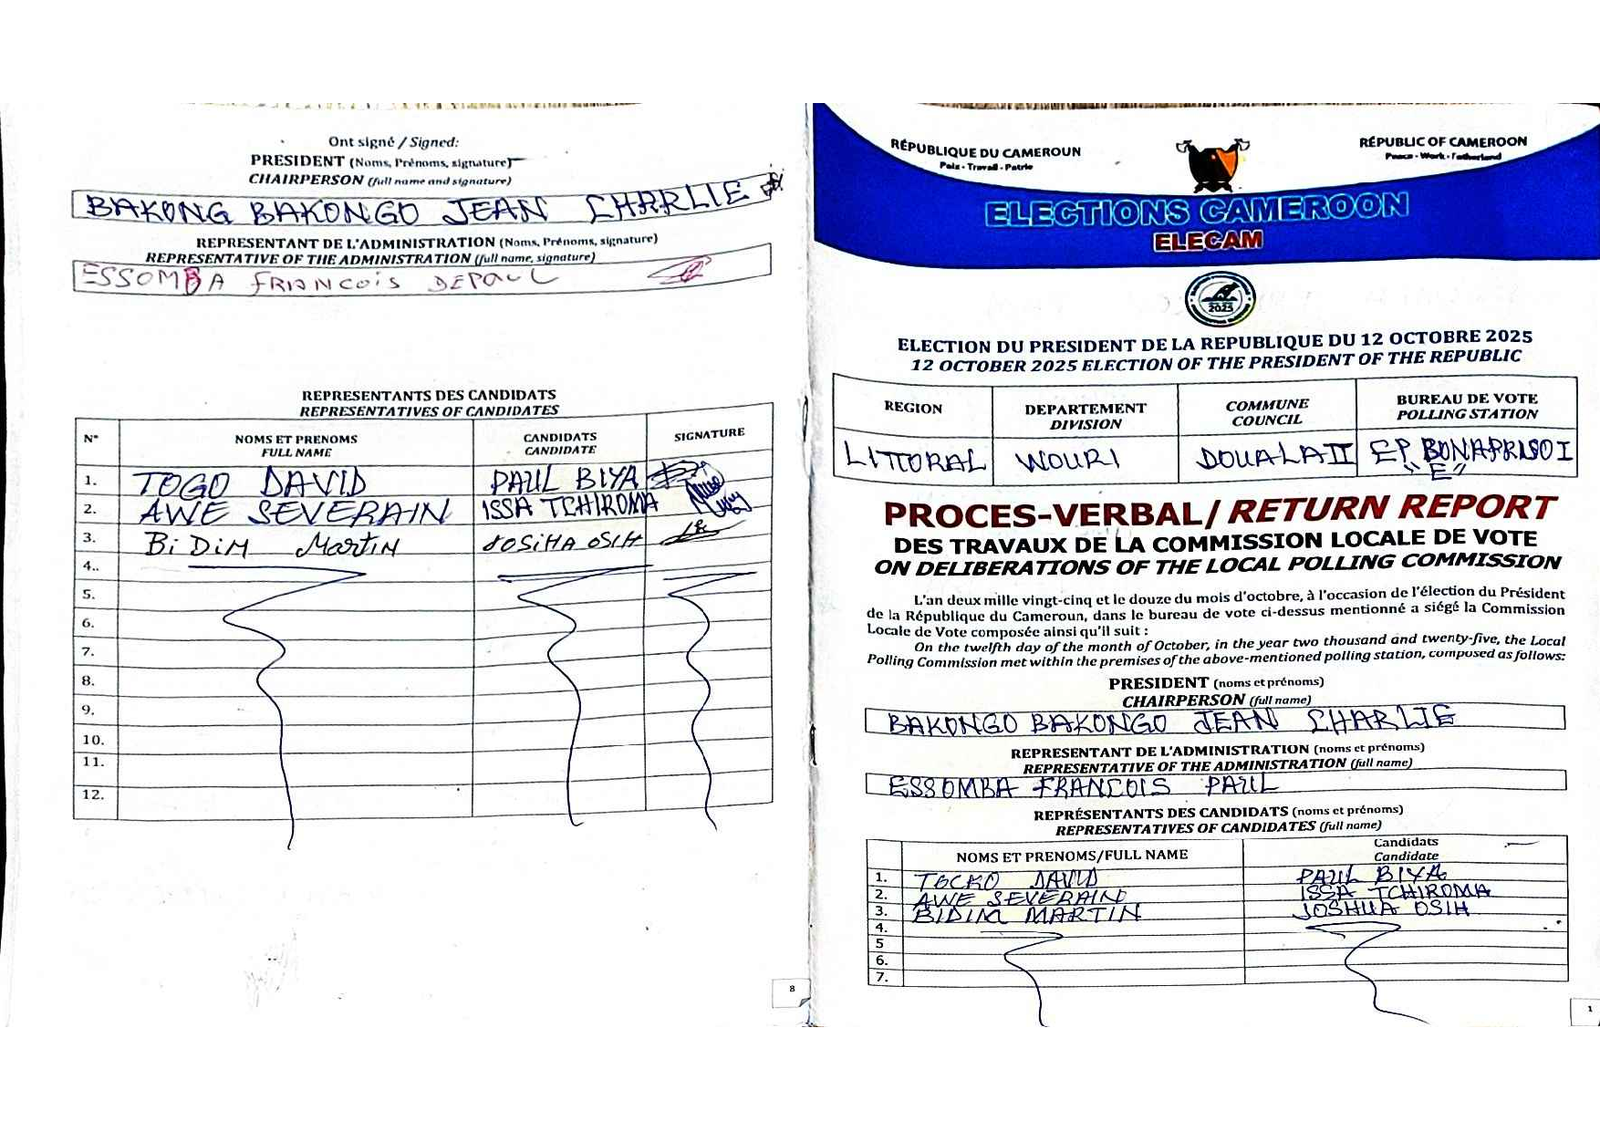 Ont signé / Signed:
PRESIDENT (Noms, Prénoms, signature)
CHAIRPERSON (full name and signature)
BAKONG BAKONGO JEAN CHARLIE
REPRESENTANT DE L'ADMINISTRATION (Noms, Prénoms, signature)
REPRESENTATIVE OF THE ADMINISTRATION (full name, signature)
ESSOMBA FRANCOIS DEPAUL
REPRESENTANTS DES CANDIDATS
REPRESENTATIVES OF CANDIDATES
N° NOMS ET PRENOMS FULL NAME CANDIDATS CANDIDATE SIGNATURE
1. TOGO DAVID PAUL BIYA
2. AWE SEVERAIN ISSA TCHIROMA
3. BiDiM Martin JOSIHA OSIH
4..
5.
6.
7.
8.
9.
10.
11.
12.
8
RÉPUBLIQUE DU CAMEROUN
Paix - Travail - Patrie
RÉPUBLIC OF CAMEROON
Peace - Work - Fatherland
ELECTIONS CAMEROON
ELECAM
2025
ELECTION DU PRESIDENT DE LA REPUBLIQUE DU 12 OCTOBRE 2025
12 OCTOBER 2025 ELECTION OF THE PRESIDENT OF THE REPUBLIC
REGION DEPARTEMENT DIVISION COMMUNE COUNCIL BUREAU DE VOTE POLLING STATION
LITTORAL WOURI DOUALA II EP BONAPRISO I
"E"
PROCES-VERBAL/ RETURN REPORT
DES TRAVAUX DE LA COMMISSION LOCALE DE VOTE
ON DELIBERATIONS OF THE LOCAL POLLING COMMISSION
L'an deux mille vingt-cinq et le douze du mois d'octobre, à l'occasion de l'élection du Président
de la République du Cameroun, dans le bureau de vote ci-dessus mentionné a siégé la Commission
Locale de Vote composée ainsi qu'il suit :
On the twelfth day of the month of October, in the year two thousand and twenty-five, the Local
Polling Commission met within the premises of the above-mentioned polling station, composed as follows:
PRESIDENT (noms et prénoms)
CHAIRPERSON (full name)
BAKONGO BAKONGO JEAN CHARLIE
REPRESENTANT DE L'ADMINISTRATION (noms et prénoms)
REPRESENTATIVE OF THE ADMINISTRATION (full name)
ESSOMBA FRANCOIS PAUL
REPRÉSENTANTS DES CANDIDATS (noms et prénoms)
REPRESENTATIVES OF CANDIDATES (full name)
NOMS ET PRENOMS/FULL NAME Candidats Candidate
1. TOCKO DAVID PAUL BIYA
2. AWE SEVERAIN ISSA TCHIROMA
3. BIDIM MARTIN JOSHUA OSIH
4.
5
6.
7.
1